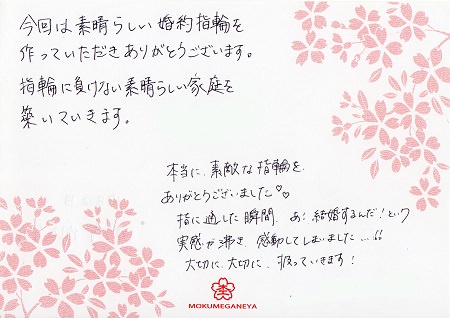 今回は素晴らしい婚約指輪を
作っていただきありがとうございます。
指輪に負けない素晴らしい家庭を
築いていきます。
本当に、素敵な指輪を
ありがとうございました♡♡
指に通した瞬間、あ、結婚するんだ!という
実感が沸き、感動してしまいました…!!
大切に、大切に、扱っていきます!
MOKUMEGANEYA